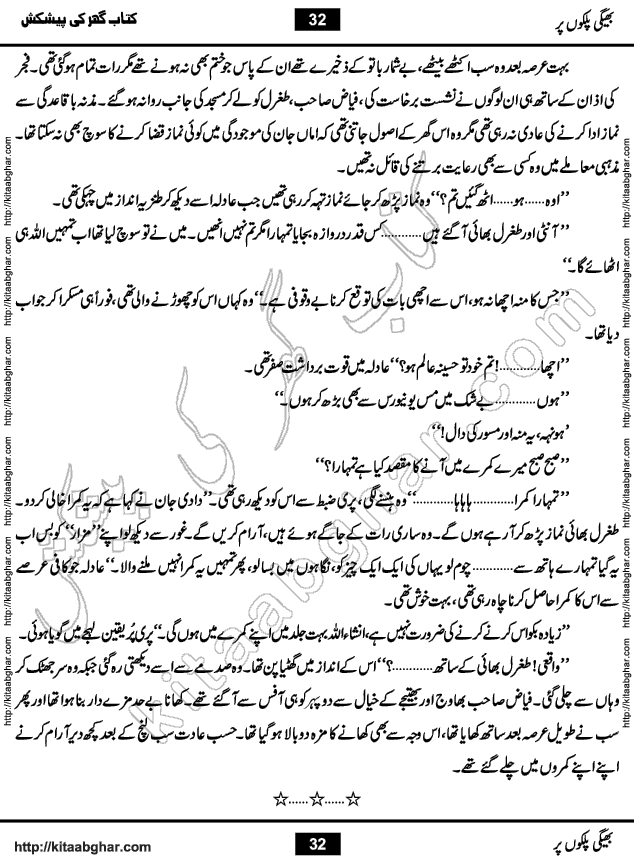 بھیگی پلکوں پر 32 کتاب گھر کی پیشکش
بہت عرصہ بعد وہ سب اکٹھے بیٹھے، بے شمار باتو کے ذخیرے تھے ان کے پاس جو ختم بھی نہ ہونے تھے مگر رات تمام ہو گئی تھی۔ فجر
کی اذان کے ساتھ ہی ان لوگوں نے نشست برخاست کی، فیاض صاحب، طغرل کو لے کر مسجد کی جانب روانہ ہو گئے۔ مذنہ باقاعدگی سے
نماز ادا کرنے کی عادی نہ رہی تھی مگر وہ اس گھر کے اصول جانتی تھی کہ اماں جان کی موجودگی میں کوئی نماز قضا کرنے کا سوچ بھی نہ سکتا تھا۔
مذہبی معاملے میں وہ کسی سے بھی رعایت برتنے کی قائل نہ تھیں۔
’’اوہ......ہو......اٹھ گئیں تم؟‘‘ وہ نماز پڑھ کر جائے نماز تہہ کر رہی تھیں جب عادلہ اسے دیکھ کر طنزیہ انداز میں چہکی تھی۔
’’آنٹی اور طغرل بھائی آ گئے ہیں............کس قدر دروازہ بجایا تمہارا مگر تم نہیں اٹھیں۔ میں نے تو سوچ لیا تھا اب تمہیں اللہ ہی
اٹھائے گا۔‘‘
’’جس کا منہ اچھا نہ ہو، اس سے اچھی بات کی توقع کرنا بے وقوفی ہے۔‘‘ وہ کہاں اس کو چھوڑنے والی تھی، فوراً ہی مسکرا کر جواب
دیا تھا۔
’’اچھا............! تم خود تو حسینہ عالم ہو؟‘‘ عادلہ میں قوت برداشت صفر تھی۔
’’ہوں............بے شک میں مس یونیورس سے بھی بڑھ کر ہوں۔‘‘
’ہونہہ، یہ منہ اور مسور کی دال!‘‘
’’صبح صبح میرے کمرے میں آنے کا مقصد کیا ہے تمہارا؟‘‘
’’تمہارا کمرا............ہاہاہا............‘‘ وہ ہنسنے لگی، پری ضبط سے اس کو دیکھ رہی تھی۔ ’’دادی جان نے کہا ہے کہ یہ کمرا خالی کر دو۔
طغرل بھائی نماز پڑھ کر آ رہے ہوں گے۔ وہ ساری رات کے جاگے ہوئے ہیں، آرام کریں گے۔ غور سے دیکھ لو اپنے ’’مزار‘‘ کو بس اب
یہ گیا تمہارے ہاتھ سے............ چوم لو یہاں کی ایک ایک چیز کو، نگاہوں میں بسا لو، پھر تمہیں یہ کمرا نہیں ملنے والا۔‘‘ عادلہ جو کافی عرصے
سے اس کا کمرا حاصل کرنا چاہ رہی تھی، بہت خوش تھی۔
’’زیادہ بکواس کرنے کرنے کی ضرورت نہیں ہے، انشاء اللہ بہت جلد میں اپنے کمرے میں ہوں گی۔‘‘ پری پُر یقین لہجے میں گویا ہوئی۔
’’واقعی! طغرل بھائی کے ساتھ............؟‘‘ اس کے انداز میں گھٹیا پن تھا۔ وہ صدمے سے اسے دیکھتی رہ گئی جبکہ وہ سر جھٹک کر
وہاں سے چلی گئی۔ فیاض صاحب بھاوج اور بھتیجے کے خیال سے دوپہر کو ہی آفس سے آ گئے تھے۔ کھانا بے حد مزے دار بنا ہوا تھا اور پھر
سب نے طویل عرصہ بعد ساتھ کھایا تھا، اس وجہ سے بھی کھانے کا مزہ دوبالا ہو گیا تھا۔ حسب عادت سب لنچ کے بعد کچھ دیر آرام کرنے
اپنے اپنے کمروں میں چلے گئے تھے۔
☆......☆......☆
بھیگی پلکوں پر 32 http://kitaabghar.com
http://kitaabghar.com http://kitaabghar.com http://kitaabghar.com http://kitaabghar.com http://kitaabghar.com http://kitaabghar.com
http://kitaabghar.com http://kitaabghar.com http://kitaabghar.com http://kitaabghar.com http://kitaabghar.com http://kitaabghar.com
کتاب گھر کی پیشکش
kitaabghar.com